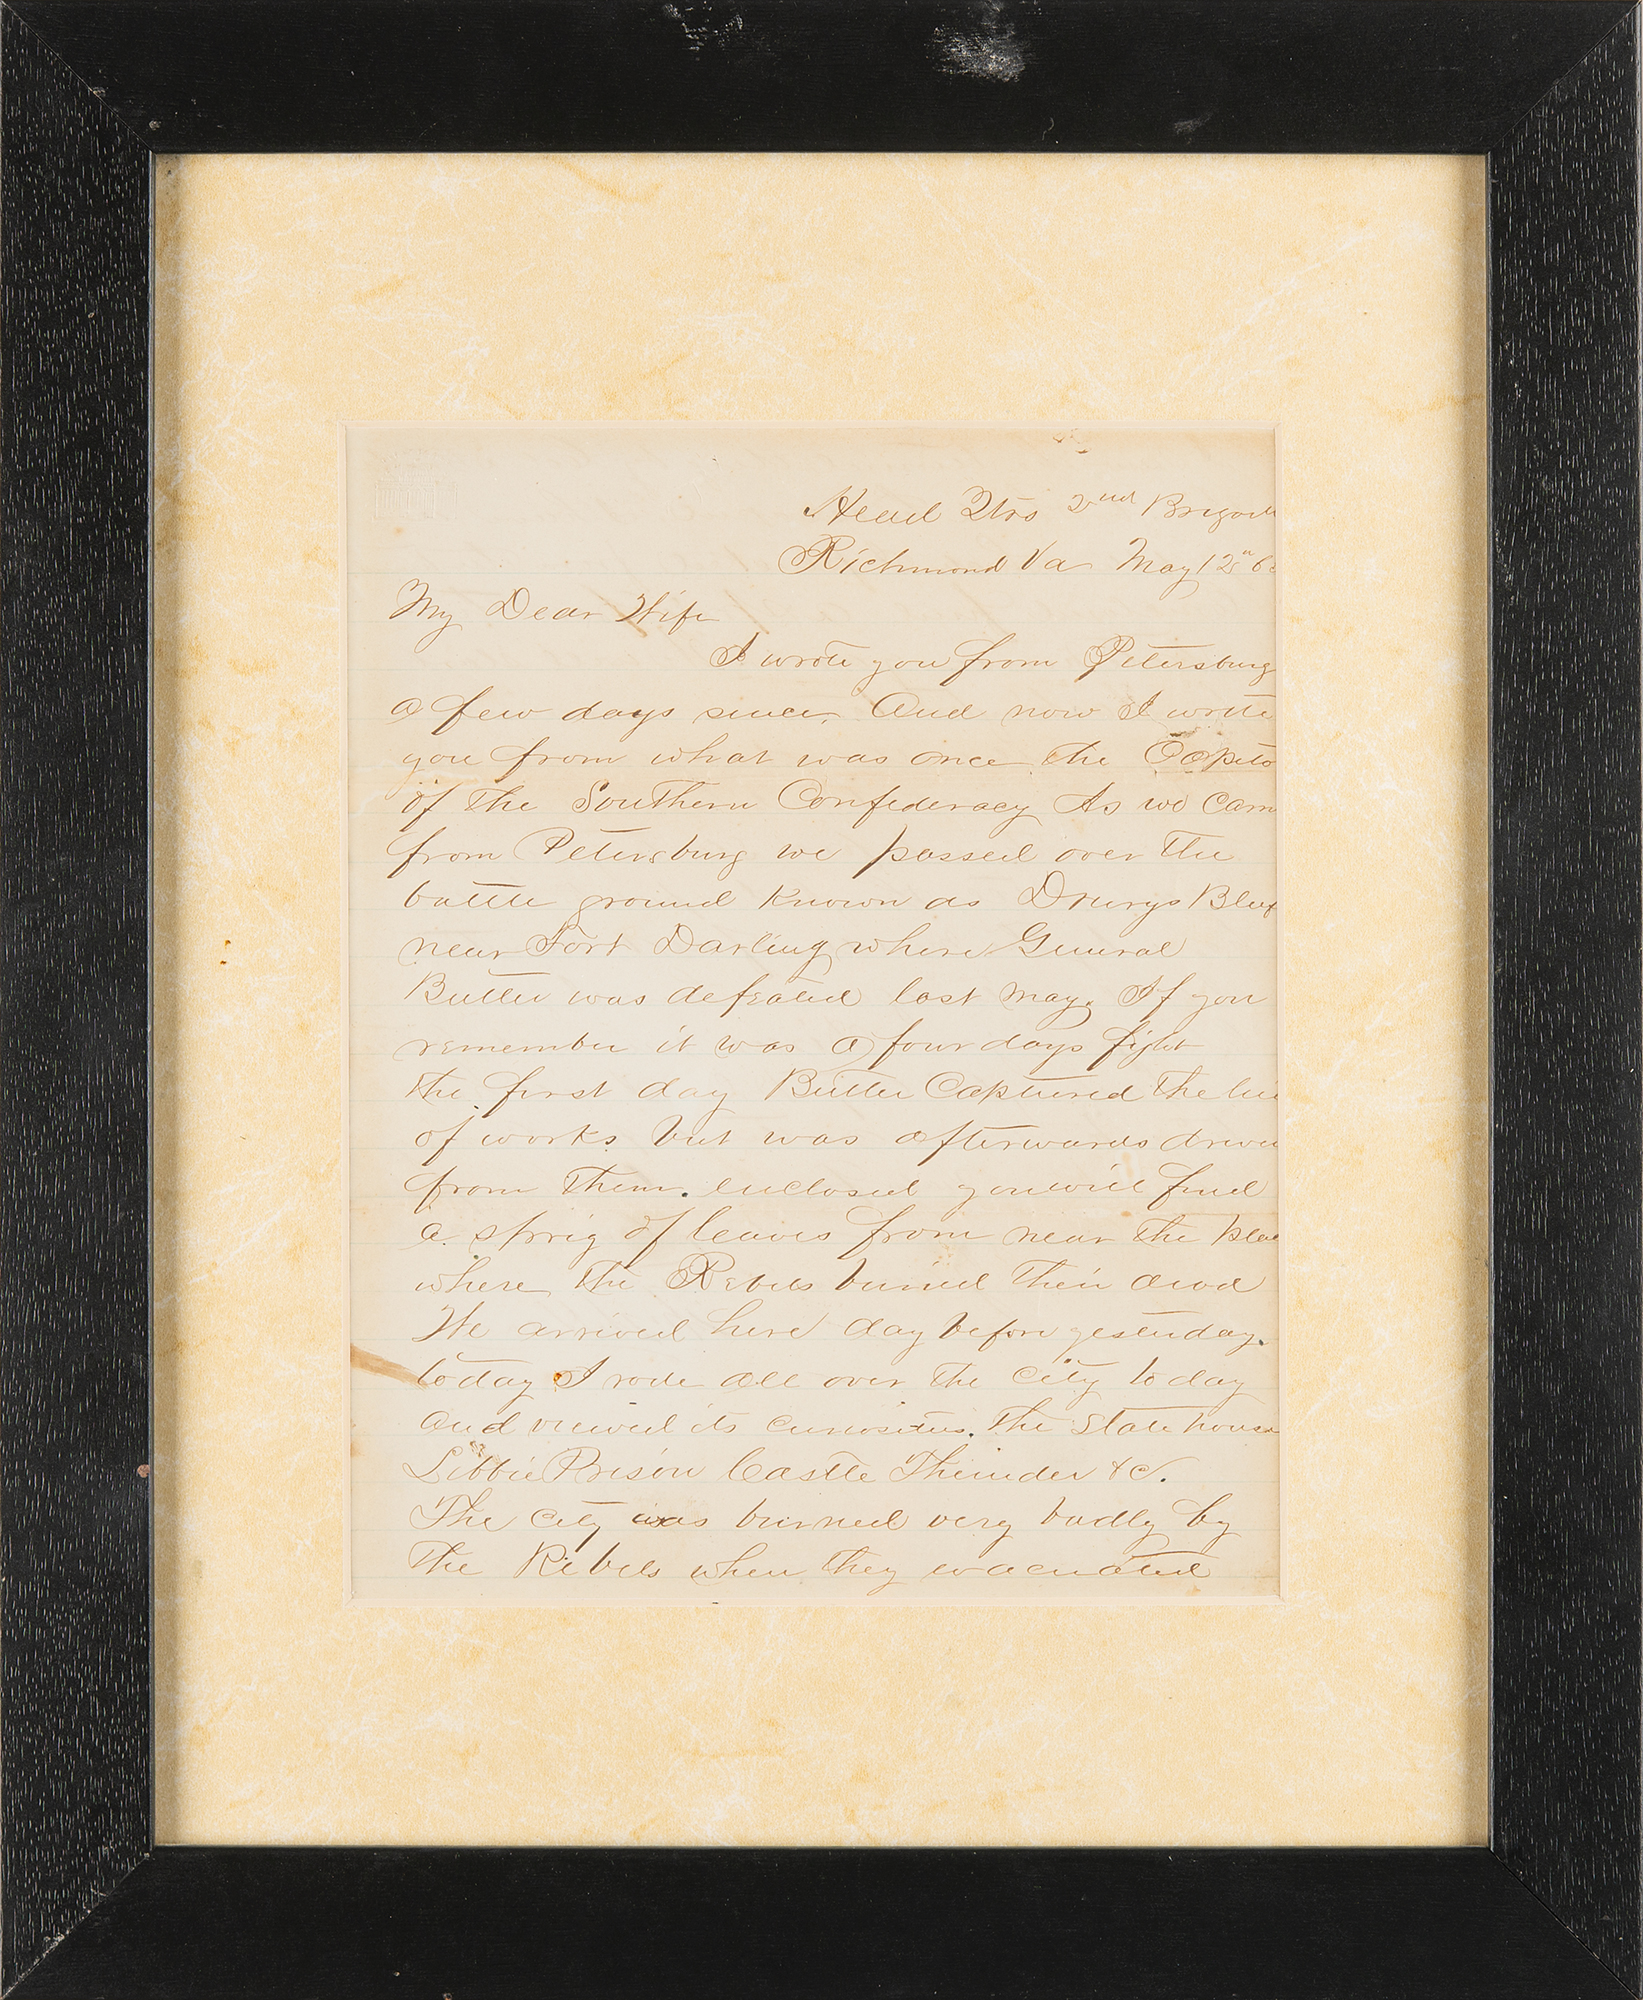 Head Qtrs 2nd Brigade
Richmond Va May 12th 6
My Dear Wife
I wrote you from Petersburg
a few days since. And now I write
you from what was once the Capito
of the Southern Confederacy As we cam
from Petersburg we passed over the
battle ground known as Drurys Bluf
near Fort Darling where General
Butler was defeated last may. If you
remember it was a four days fight
the first day Butler Captured the lin
of works but was afterwards driven
from them. enclosed you will find
a sprig of leaves from near the plac
where the Rebels buried their dead
We arrived here day before yesterday.
today I rode all over the city to day
and viewed its curiosities. The State house
Libbie Prison Castle Thunder &c.
The city was burned very badly by
the Rebels when they evacuated